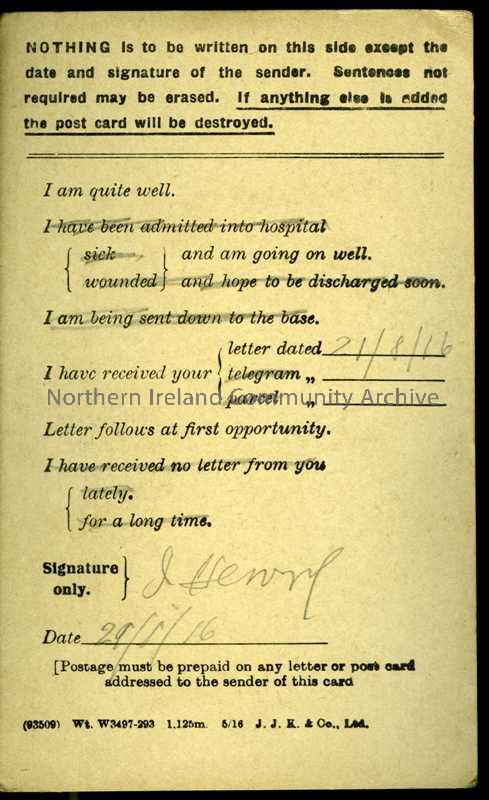 NOTHING is to be written on this side except the
date and signature of the sender. Sentences not
required may be erased. If anything else is added
the post card will be destroyed.
I am quite well.
I have been admitted into hospital
sick } and am going on well.
wounded } and hope to be discharged soon.
I am being sent down to the base.
letter dated 21/8/16
I have received your { telegram „
parcel „
Northern Ireland Community Archive
Letter follows at first opportunity.
I have received no letter from you
lately.
for a long time.
Signature only. } J Henry
Date 29/8/16
[Postage must be prepaid on any letter or post card
addressed to the sender of this card
(93509) Wt. W3497-293 1,125m. 5/16 J. J. K. & Co., Ltd.